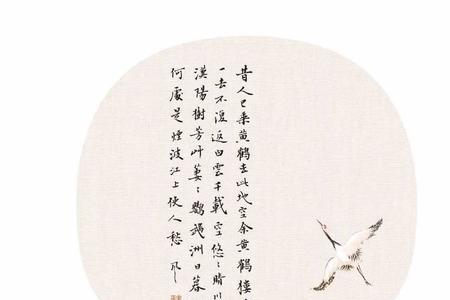 昔人已乘黄鶴去此地空余黄鶴樓
一去不復返白雲千載空悠々晴川
漢陽樹芳艸萋々鸚鵡洲日暮
何處是煙波江上使人愁